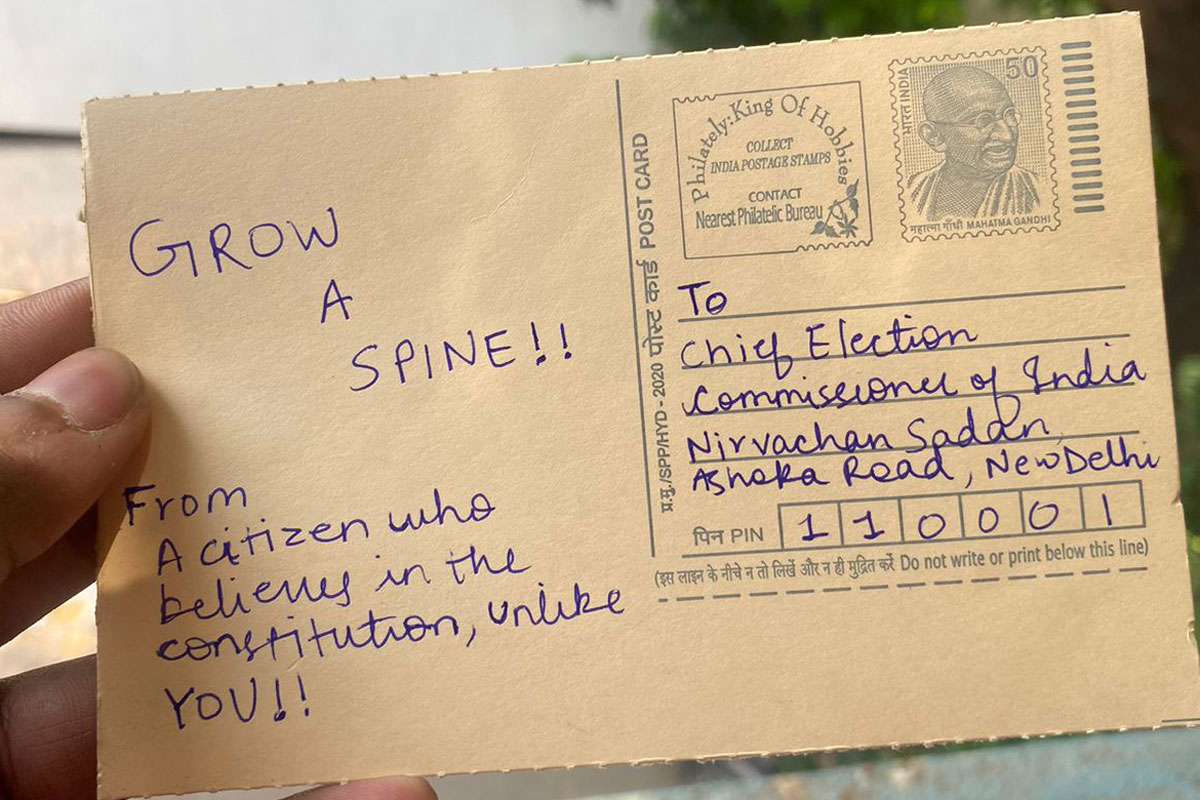 GROW
A
SPINE!!
From
A citizen who
believes in the
constitution, unlike
YOU!!
प्र.मु./SPP/HYD - 2020 पोस्ट कार्ड POST CARD
Philately: King Of Hobbies
COLLECT
INDIA POSTAGE STAMPS
CONTACT
Nearest Philatelic Bureau
भारत INDIA
50
महात्मा गाँधी MAHATMA GANDHI
To
Chief Election
Commissioner of India
Nirvachan Sadan
Ashoka Road, New Delhi
पिन PIN 110001
(इस लाइन के नीचे न तो लिखें और न ही मुद्रित करें Do not write or print below this line)